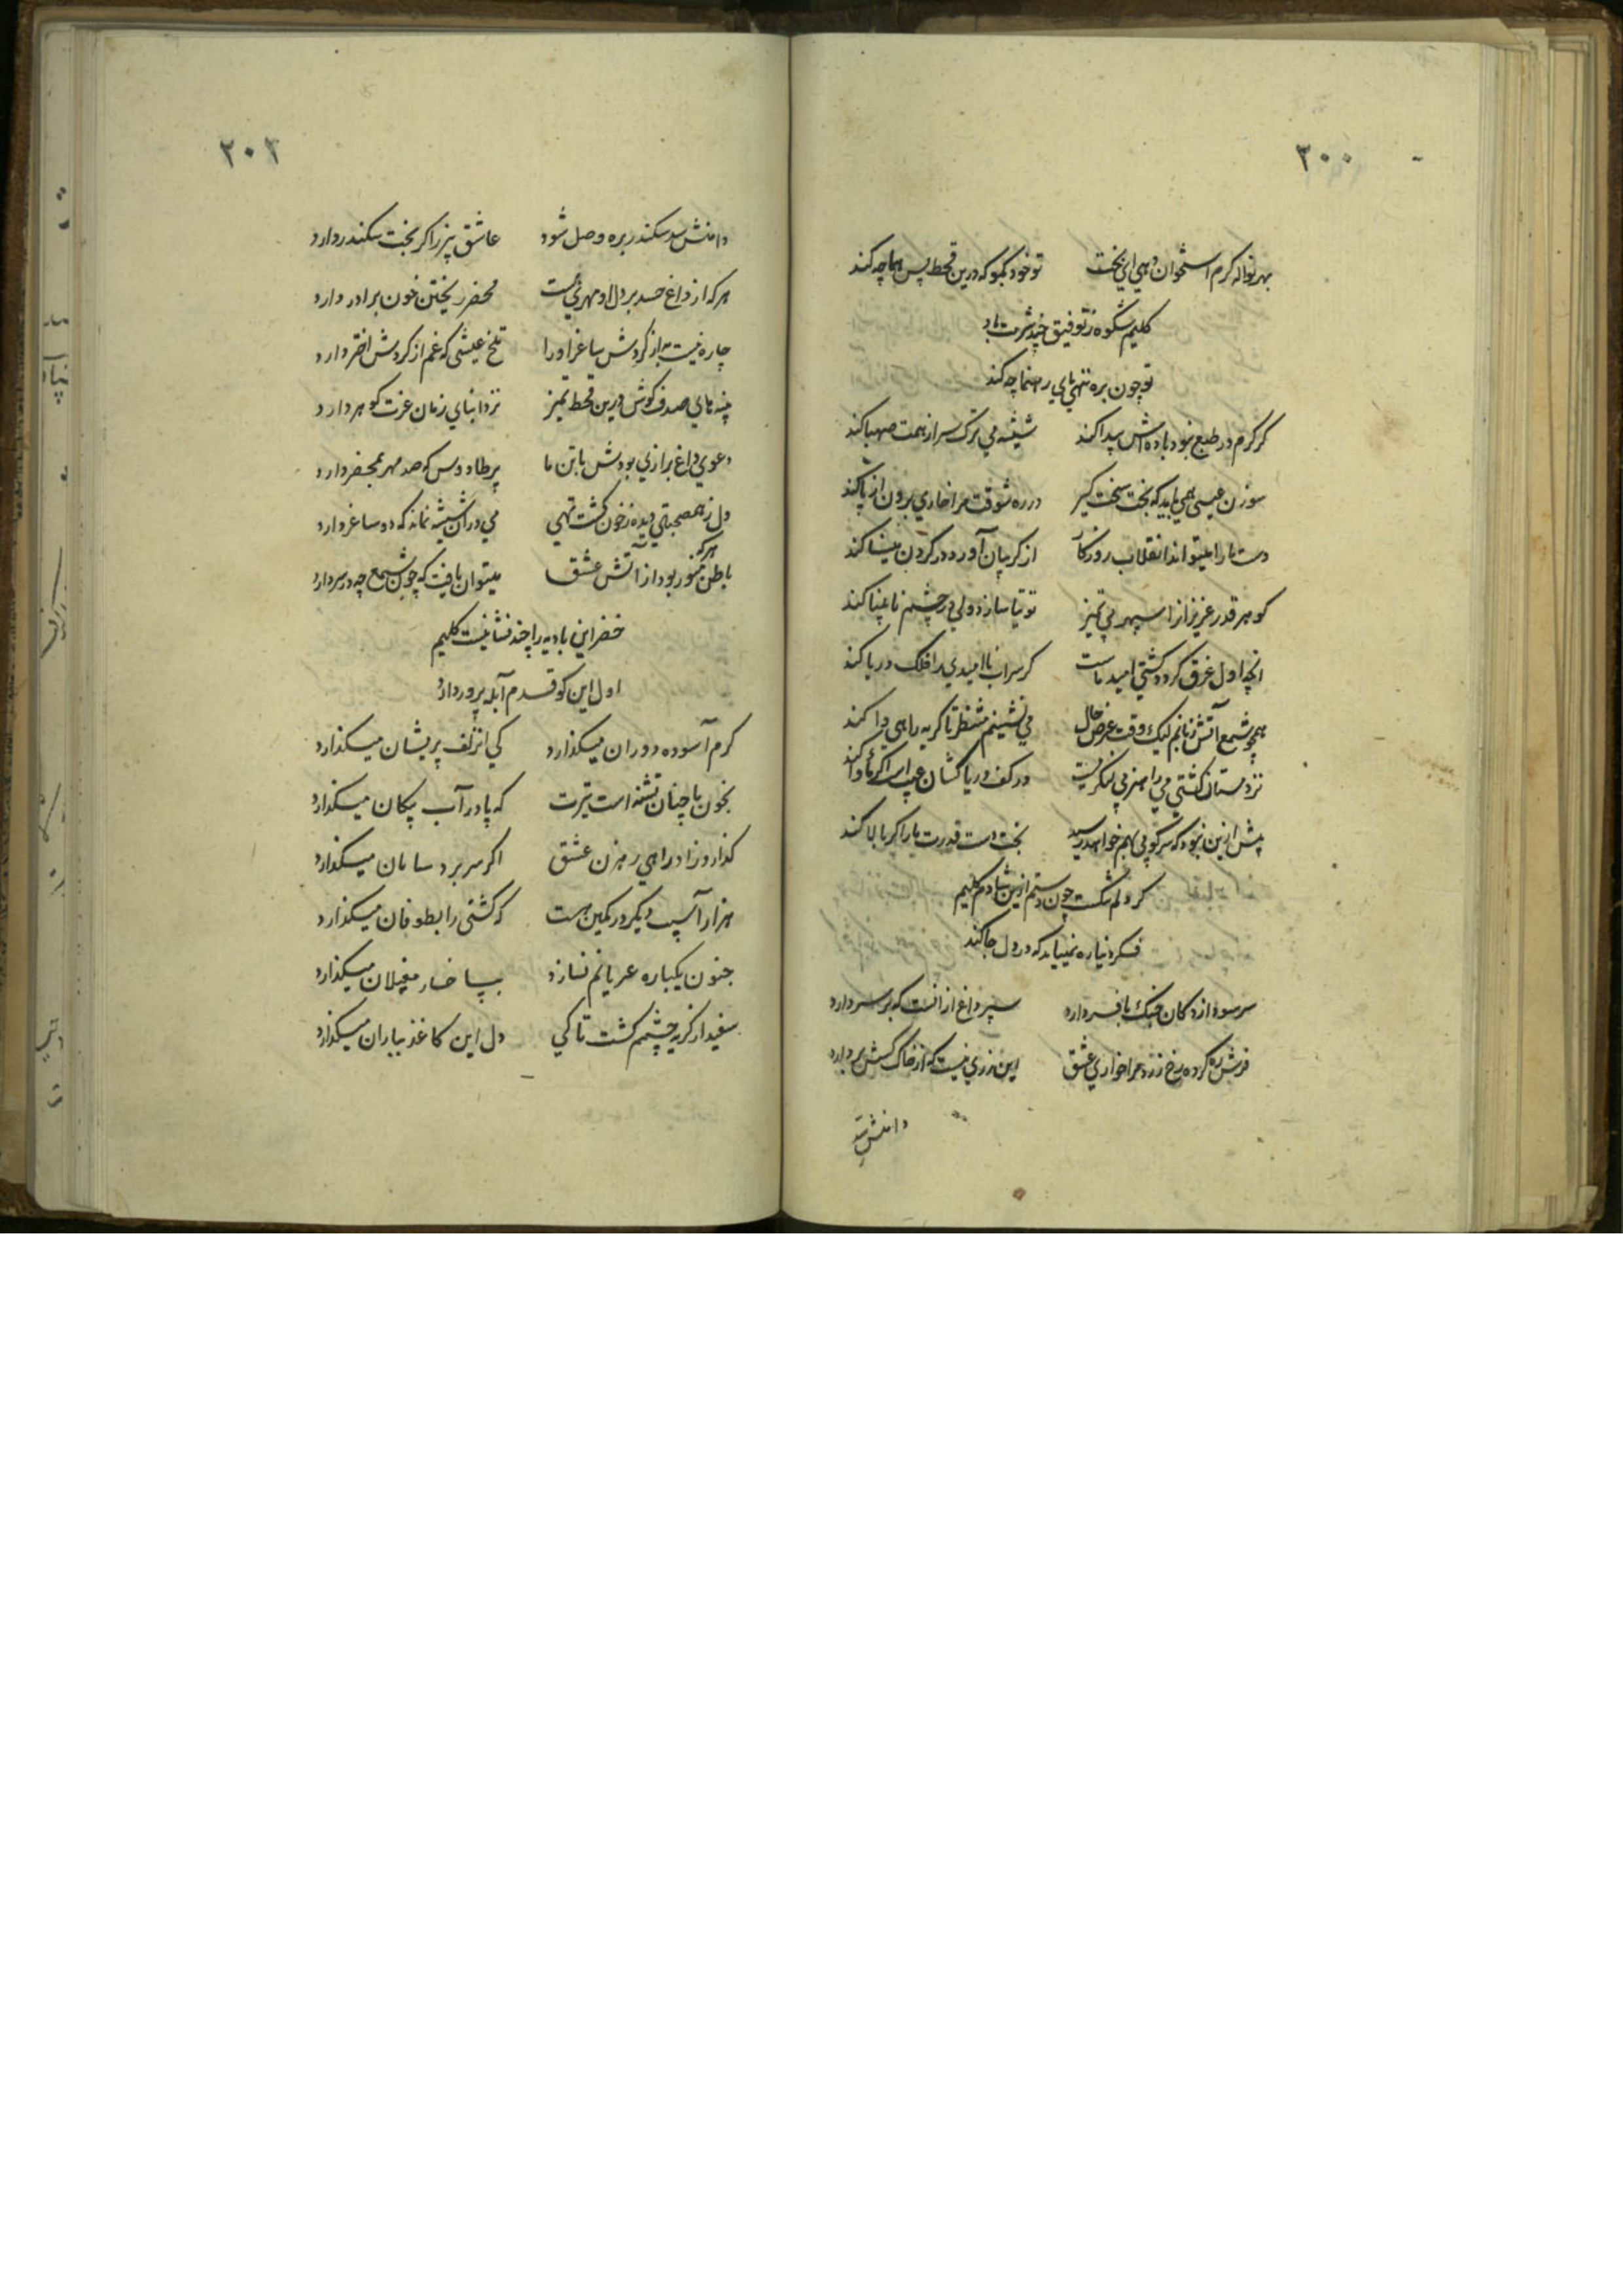 ۲۰۰
بهر نواله کرم استخوان دهی ای بخت تو خود بگو که درین قحط پس هما چه کند
کلیم شکوه ز توفیق چند شرمت باد
تو چون بره ننهی پای رهنما چه کند
گر کرم در طبع نبود باده اش پیدا کند شیشه می ترک سر از همت صهبا کند
سوزن عیسی همی باید که بخت سخت گیر در ره شوقت مرا خاری برون از پا کند
دست ما را میتواند انقلاب روزگار از گریبان آورد در گردن مینا کند
گوهر قدر عزیز از سپهر بی تمیز توتیا سازد ولی در چشم نابینا کند
آنچه اول غرق گردد کشتی امید ماست گر سراب ناامیدی را فلک دریا کند
همچو شمع آتش زبانم لیک وقت عرض حال می نشینم منتظر تا گریه راهی وا کند
نزد مستان کشتی می را هنر بی لنگریست در کف دریا کشان عیب است اگر مأوا کند
پیش ازین نبود که سرکوبی بهم خواهد رسید بخت دست قدرت ما را گر بالا کند
گر دلم بشکست چون رستم ازین شادم کلیم
فکر دنیا ره نمییابد که در دل جا کند
سر سودا زدگان فنگ بافسر دارد سپر داغ از آنست که بر سر دارد
فرش ره کرده رخ زرد مرا خواری عشق این زری نیست که از خاک کسش بردارد
دامنش سد
۲۰۱
دامنش سد سکندر بره وصل شود عاشق پیر زا گر بخت سکندر دارد
هر که از داغ حسد بر دل او مهری هست محضر ریختن خون برادر دارد
چاره نیست بجز گردش ساغر او را تلخ عیشی که غم از گردش اختر دارد
پنبه مالی صدف گوش درین قحط تمیز نزد ابنای زمان عزت گوهر دارد
دعوی داغ برازنی بودش با تن ما پر طاووس که صد مهر بمحضر دارد
دل ز همصحبتی دیده ز خون گشت تهی می در آن شیشه نماند که دو ساغر دارد
باطن هر که منور بود از آتش عشق میتوان یافت که چون شمع چه در سر دارد
خضر این بادیه را چند نشانیست کلیم
اول این کو قدم آبله پرور دارد
گرم آسوده دوران میگذارد کی آن زلف پریشان میگذارد
بخون ما چنان تشنه است تیرت که پا در آب پیکان میگذارد
گذارد زاد راهی رهزن عشق اگر سر برد سامان میگذارد
هزار آسیب دیگر در کمین هست که کشتی را بطوفان میگذارد
جنون یکباره عریانم نسازد بپا خار مغیلان میگذارد
سفید از گریه چشمم گشت تا کی دل این کاغذ بباران میگذارد